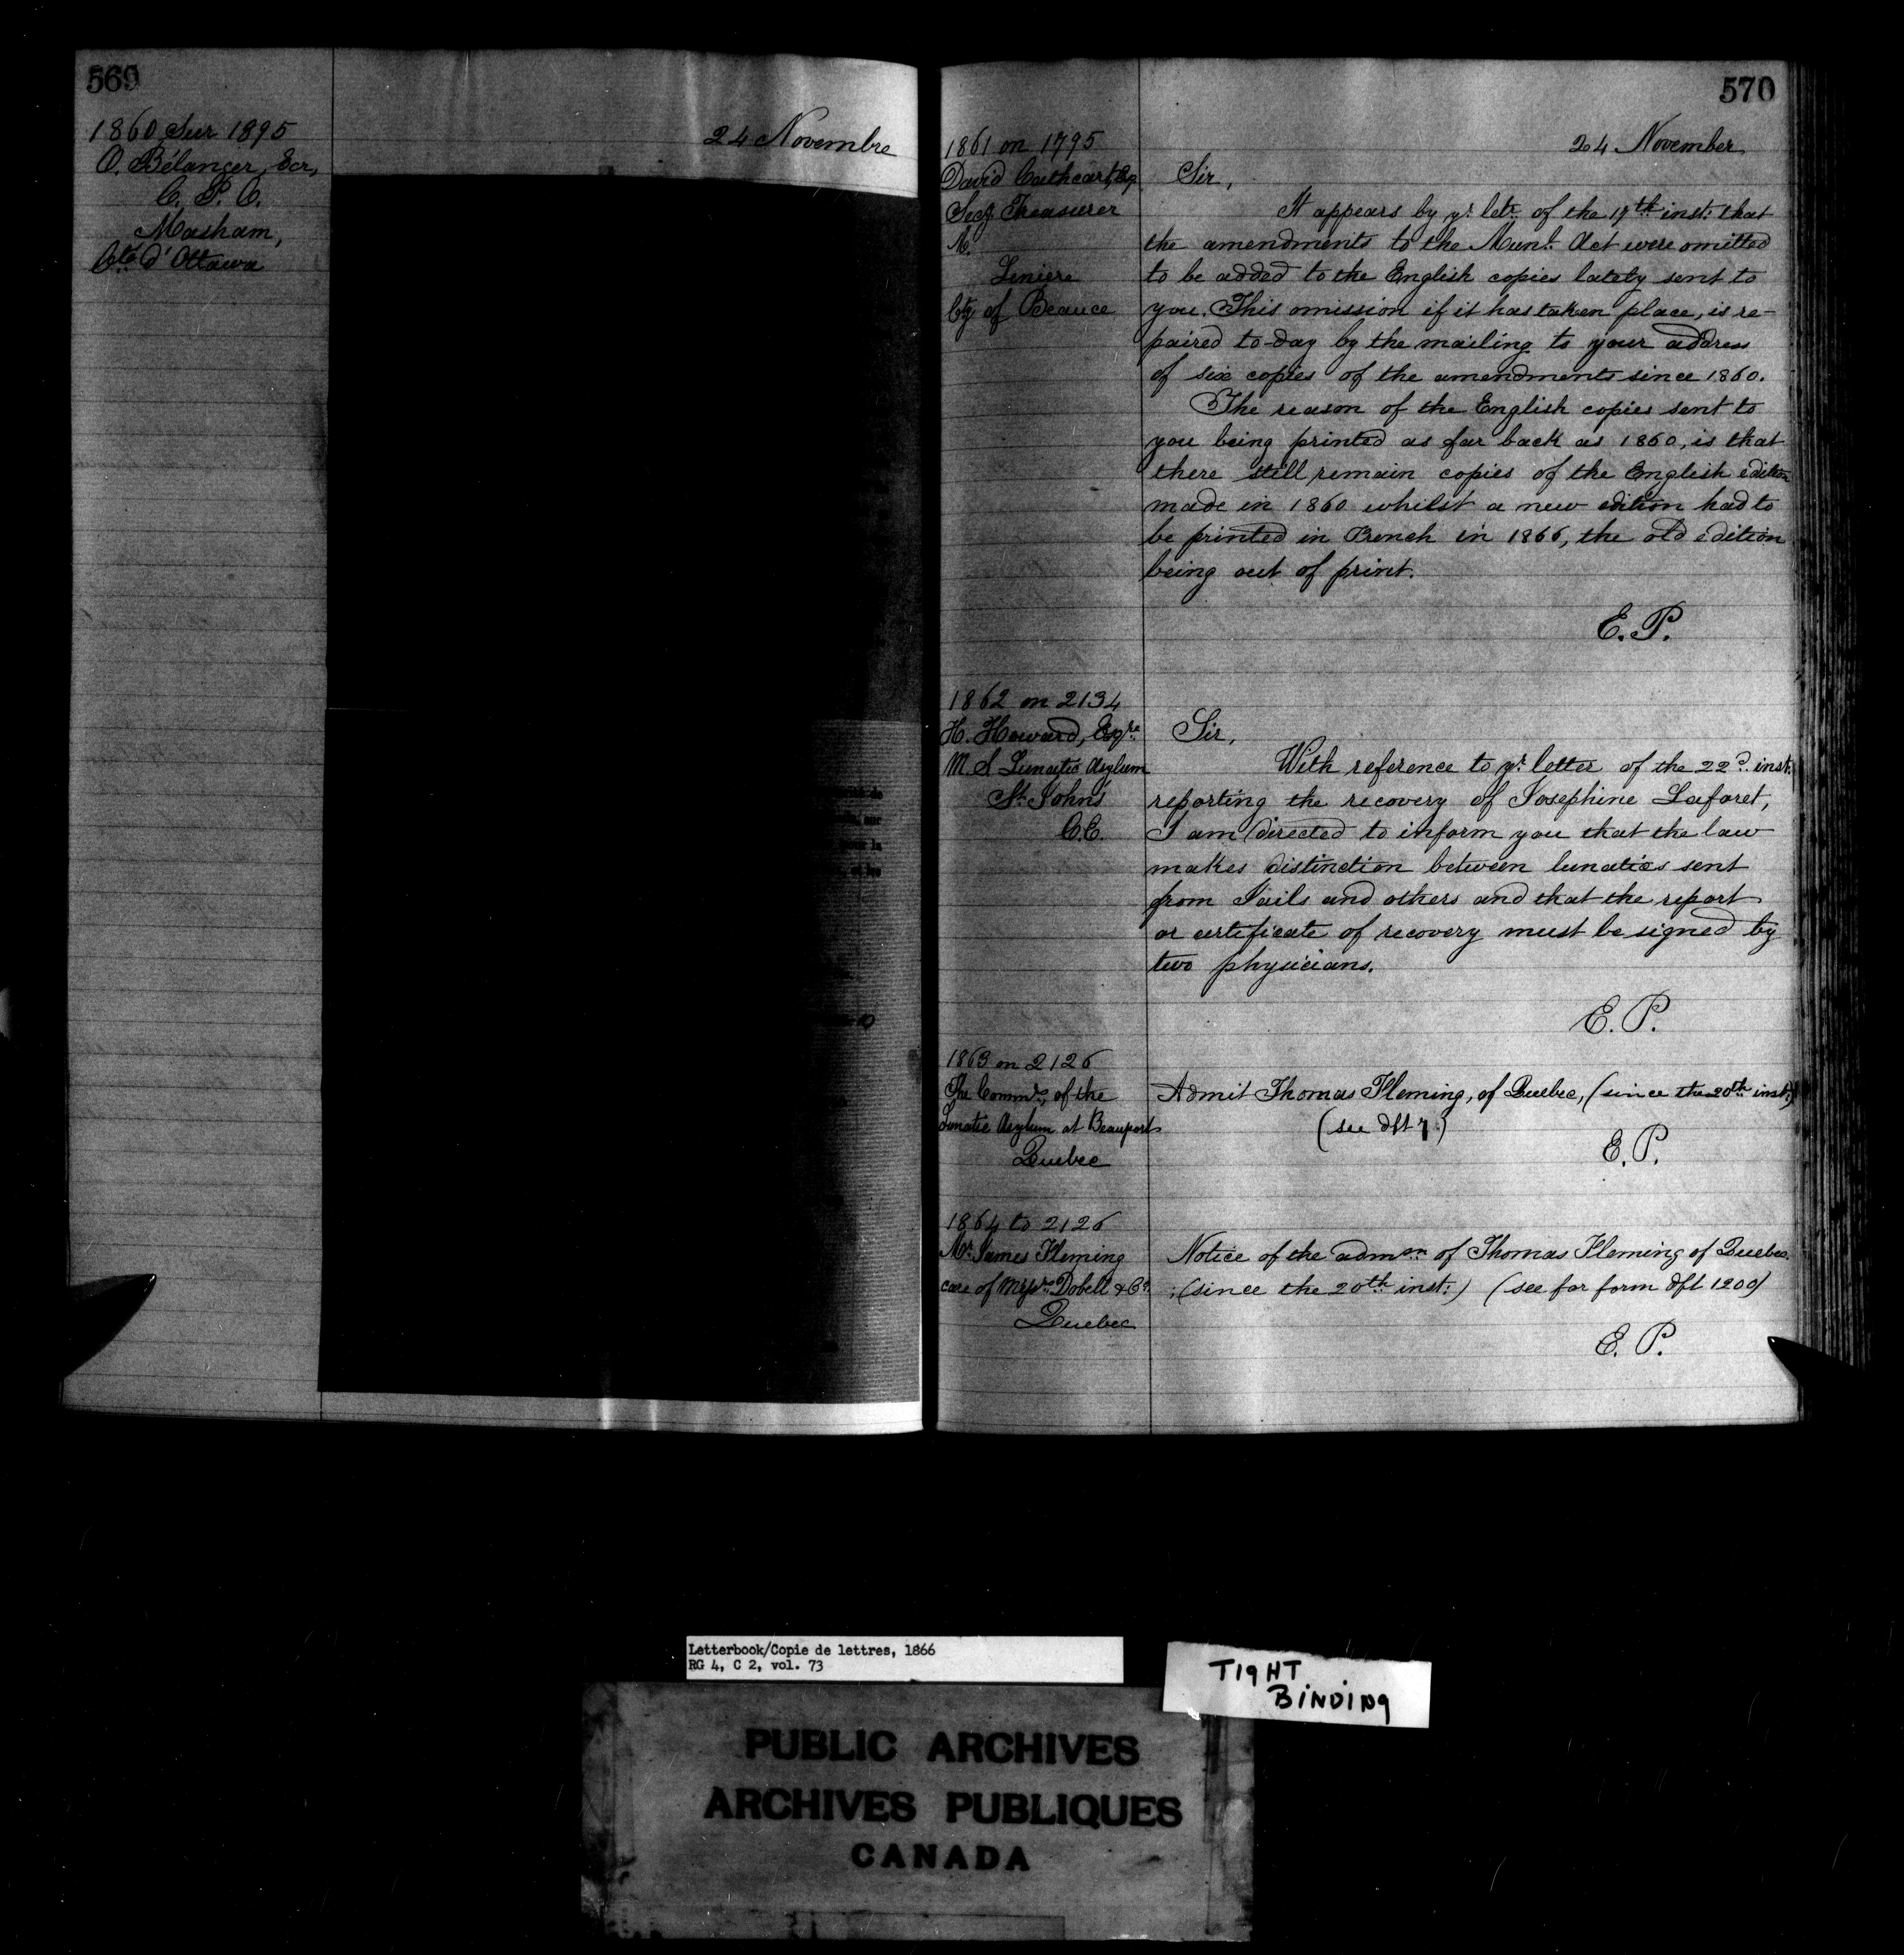 569
1860 Sur 1895
O. Bélanger, Ecr,
C. P. C.
Masham,
Cté d'Ottawa
24 Novembre
570
24 November
1861 on 1795
David Cathcart, Esq
Secy Treasurer
M.
Liniere
Cty of Beauce
Sir,
It appears by yr. letr. of the 17th inst: that
the amendments to the Munl. Act were omitted
to be added to the English copies lately sent to
you. This omission if it has taken place, is re-
paired to-day by the mailing to your address
of six copies of the amendments since 1860.
The reason of the English copies sent to
you being printed as far back as 1860, is that
there still remain copies of the English edition
made in 1860 whilst a new edition had to
be printed in French in 1866, the old edition
being out of print.
E. P.
1862 on 2134
H. Howard, Esqre
M. S Lunatic Asylum
St. Johns
C.E.
Sir,
With reference to yr. letter of the 22d. inst:
reporting the recovery of Josephine Laforet,
I am directed to inform you that the law
makes distinction between lunatics sent
from Jails and others and that the report
or certificate of recovery must be signed by
two physicians.
E. P.
1863 on 2126
The Commrs. of the
Lunatic Asylum at Beauport
Quebec
Admit Thomas Fleming, of Quebec, (since the 20th inst:)
(see dft 7.)
E. P.
1864 to 2126
Mr. James Fleming
care of Messrs. Dobell & Co.
Quebec
Notice of the admon of Thomas Fleming of Quebec.
; (since the 20th inst:) (see for form dft 1200)
E. P.
Letterbook/Copie de lettres, 1866
RG 4, C 2, vol. 73
TIGHT
BINDING
PUBLIC ARCHIVES
ARCHIVES PUBLIQUES
CANADA